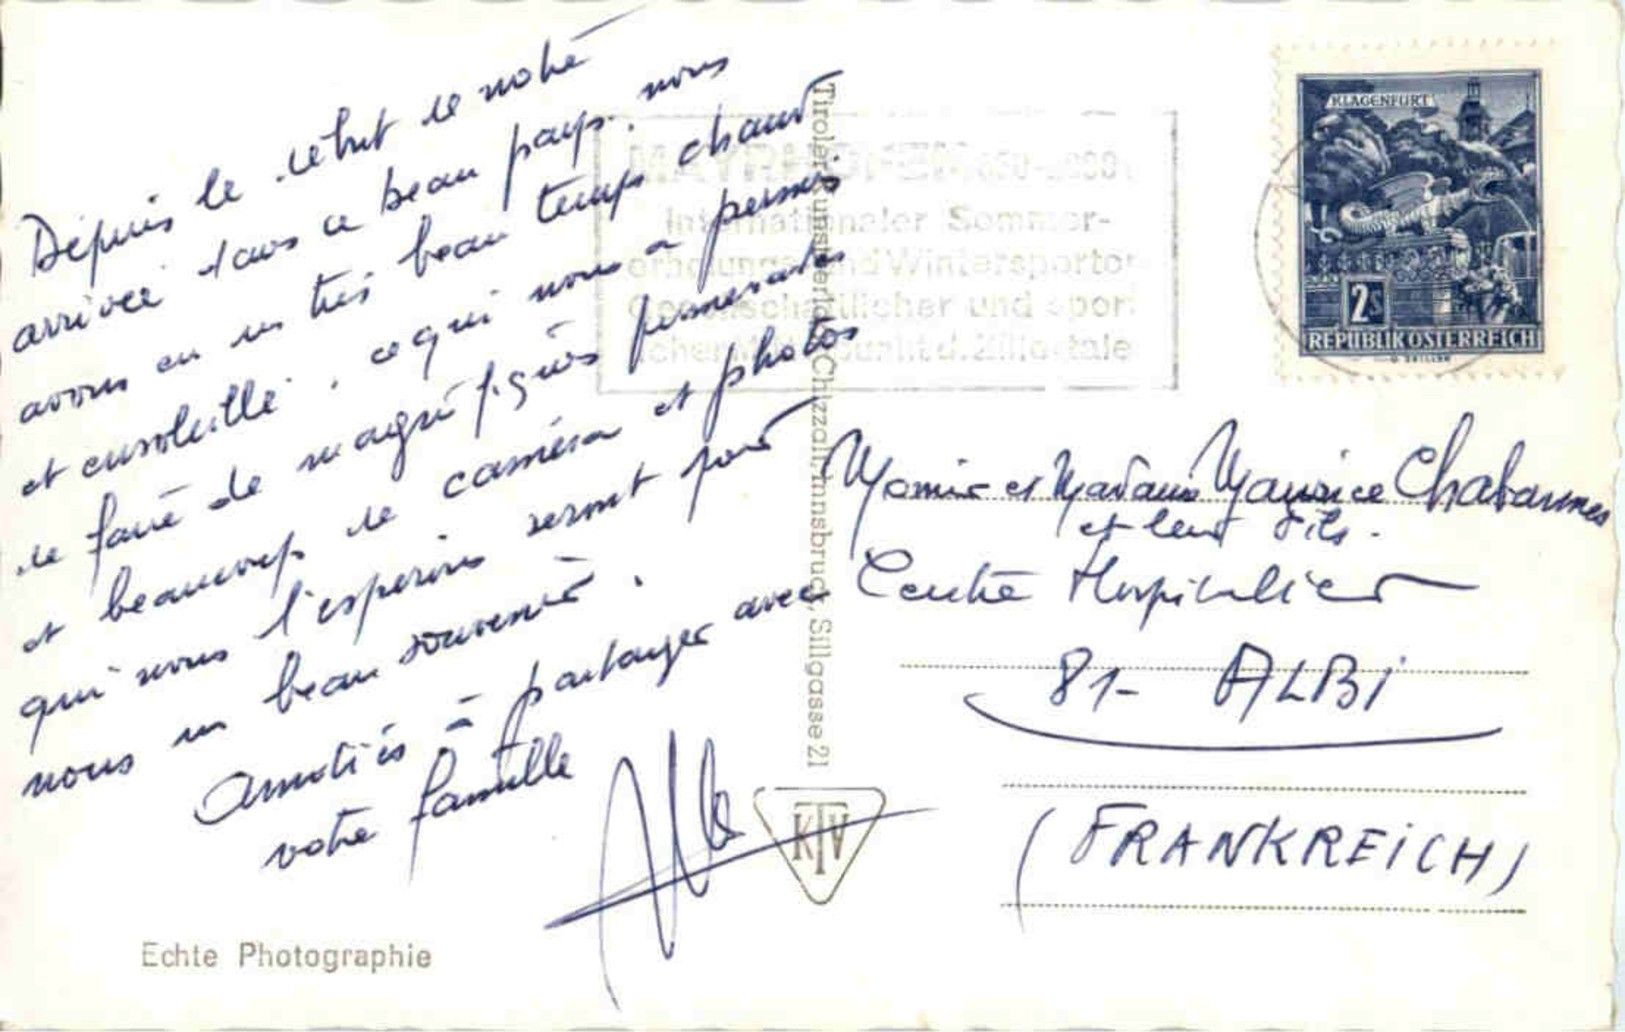 Depuis le début de notre
arrivée dans ce beau pays. nous
avons eu un très beau temps chaud
et ensoleillé. ce qui nous a permis
de faire de magnifiques promenades
et beaucoup de caméra et photos
qui nous l'espérons seront pour
nous un beau souvenir.
Amitiés à partager avec
votre famille
Echte Photographie
Tiroler Kunstverlag Chizzali, Innsbruck, Sillgasse 21
KTV
MAYRHOFEN
Internationaler Sommer-
erholungs- und Wintersportort
Gesellschaftlicher und sport
licher Mittelpunkt d. Zillertales
KLAGENFURT
2S
REPUBLIK ÖSTERREICH
Monsieur et Madame Maurice Chabannes
et leur fils.
Centre Hospitalier
81- ALBI
(FRANKREICH)